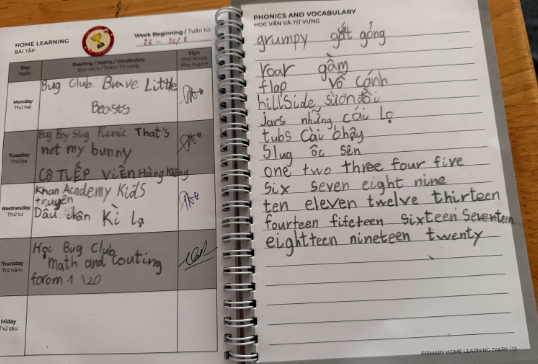 HOME LEARNING
BÀI TẬP
Week Beginning / Tuần từ:
Day
Ngày
Reading / Maths / Vocabulary
Sign
Monday
Thứ hai
Bug Club Brave Little
Beasts
Tuesday
Thứ ba
Bug Boy Slug Picnic That's
not my bunny
CÔ TIẾP VIÊN Hàng Không
Wednesday
Thứ tư
Khan Academy Kids
truyện
Dấu chân Kì lạ
Thursday
Thứ năm
Học Bug Club
Math and couting
forom 1 \20
Friday
Thứ sáu
PHONICS AND VOCABULARY
HỌC VẦN VÀ TỪ VỰNG
grumpy gắt gỏng
roar gầm
flap vỗ cánh
hillside sườn đồi
jars những cái lọ
tubs cái chậy
Slug ốc sên
one two three four five
six seven eight nine
ten eleven twelve thirteen
fourteen fifeteen sixteen seventeen
eightteen nineteen twenty
PRIMARY HOME LEARNING DIARY